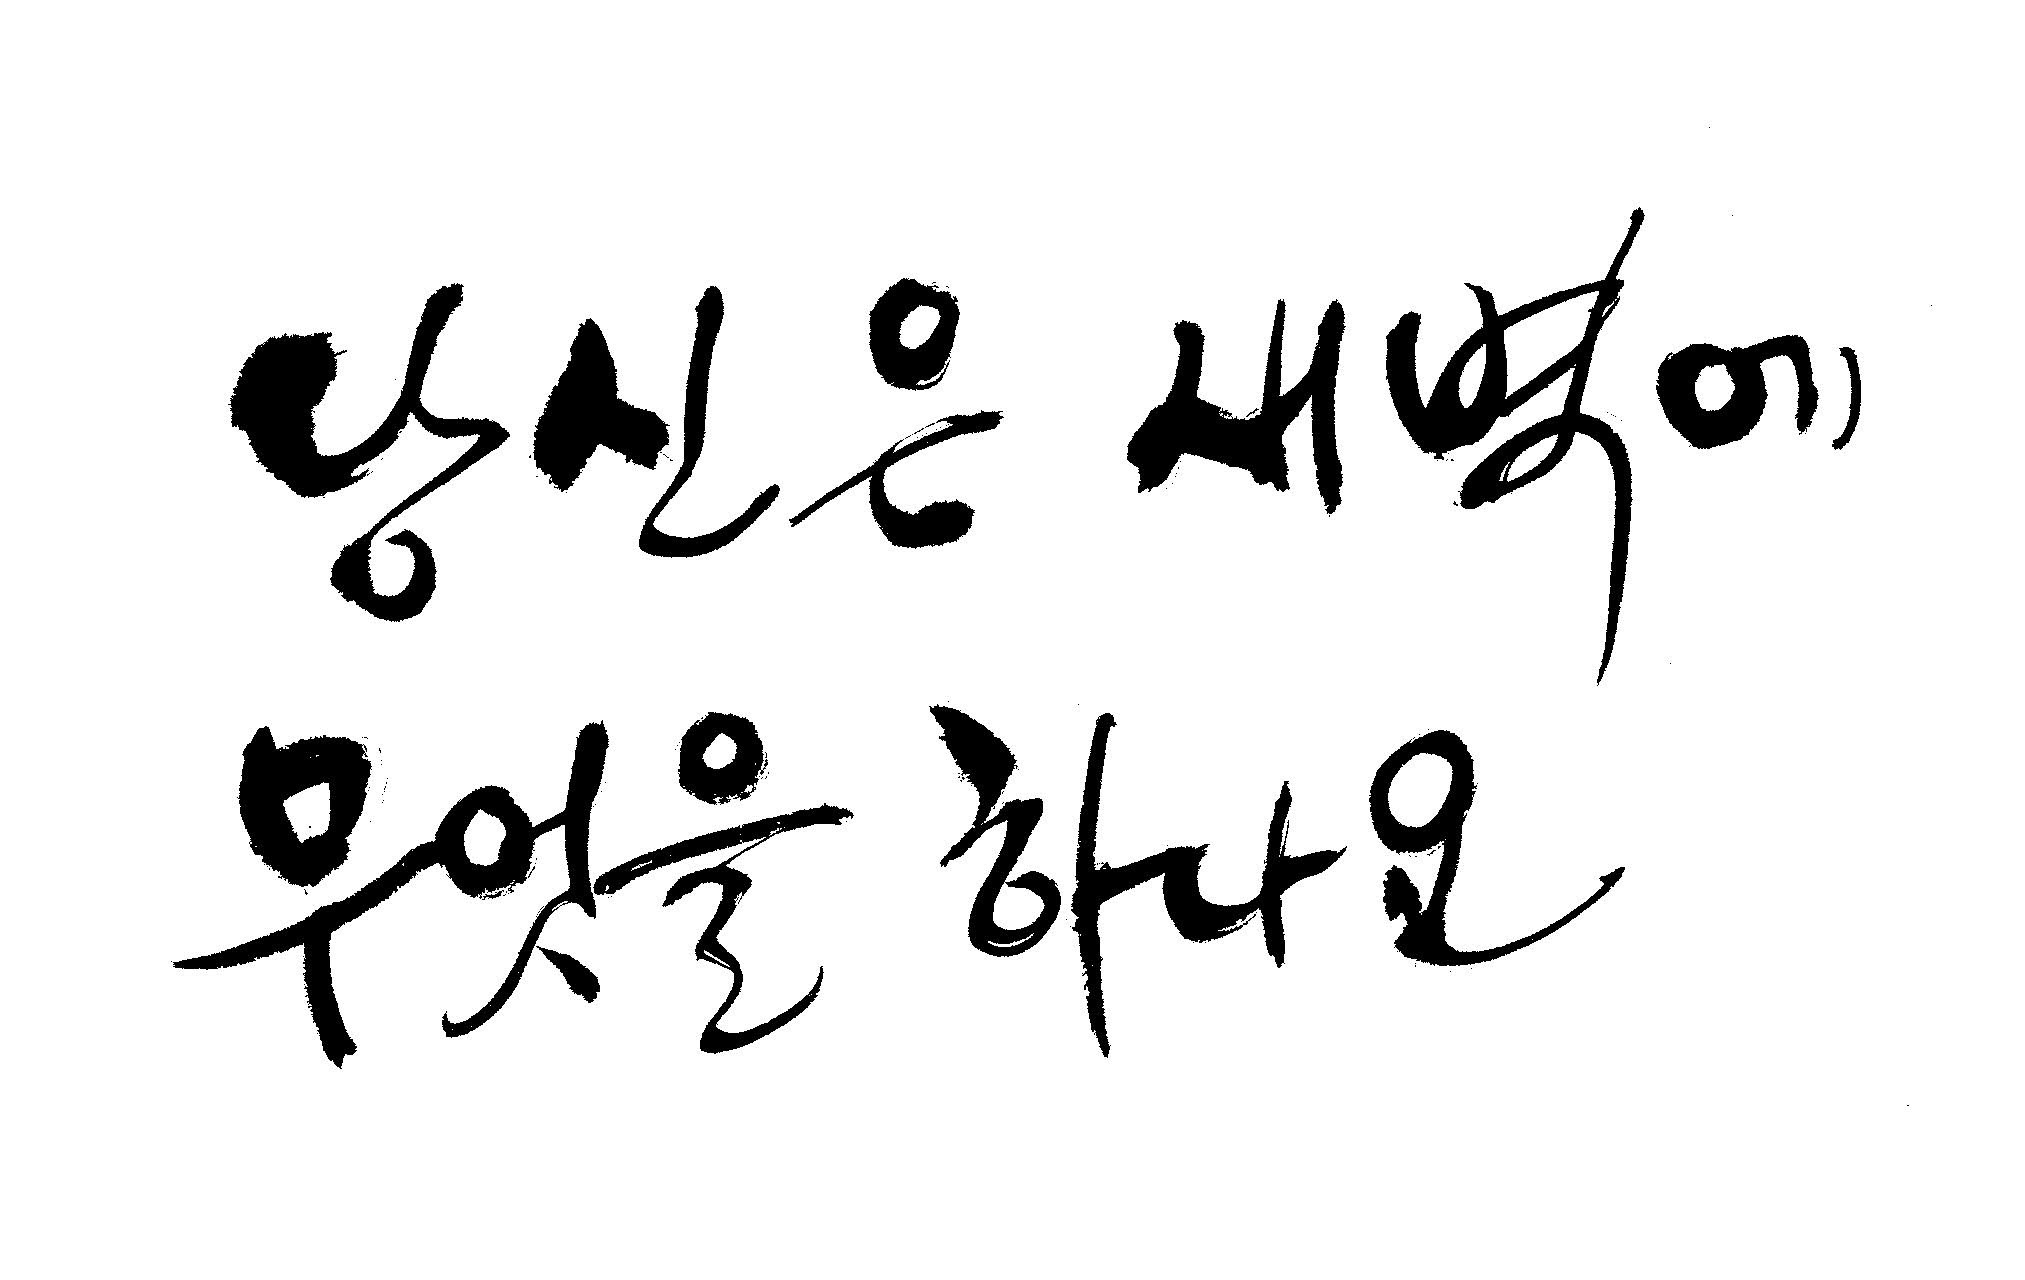 당신은 새벽에
무엇을 하나요